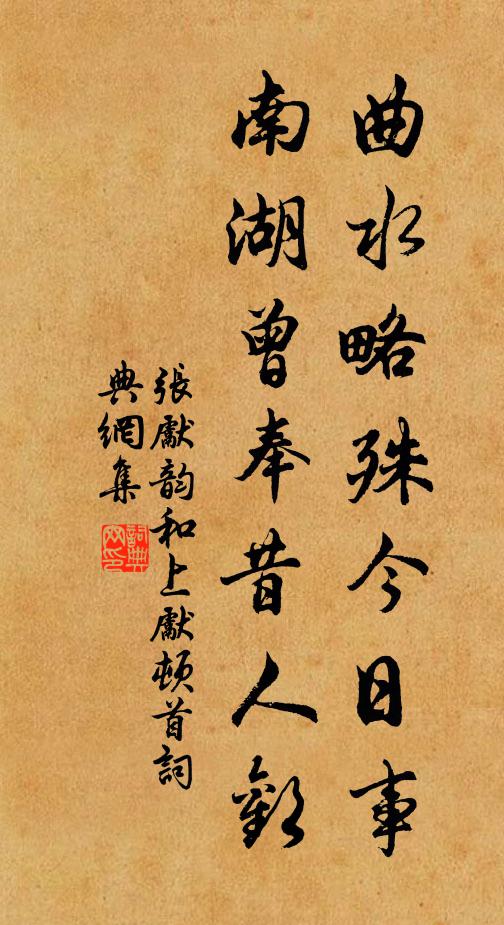 曲水略殊今日事
南湖曾奉昔人歡
張獻韵和上獻頓首詞
典網集
詞典
网印